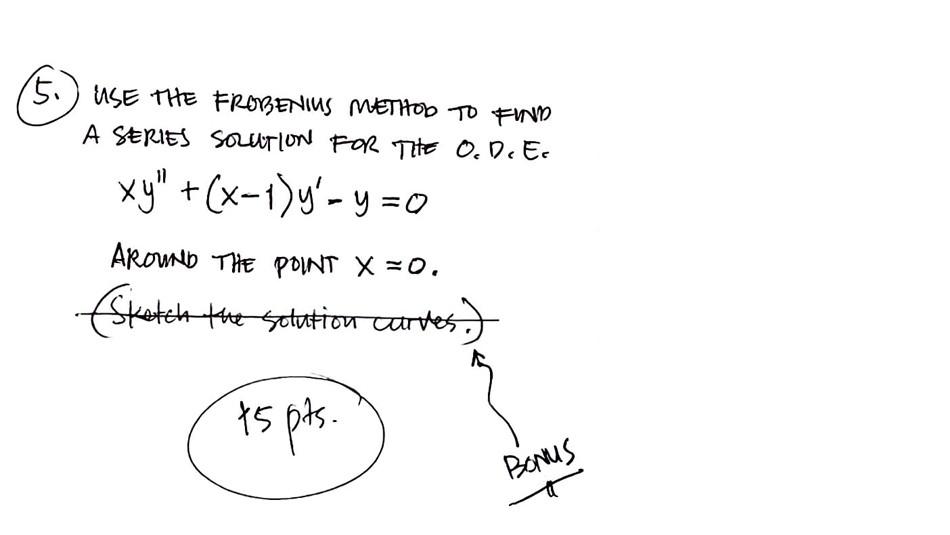 5. USE THE FROBENIUS METHOD TO FIND
A SERIES SOLUTION FOR THE O.D.E.
xy" + (x-1)y' - y = 0
AROUND THE POINT X = 0.
(Sketch the solution curves.)
+5 pts.
BONUS